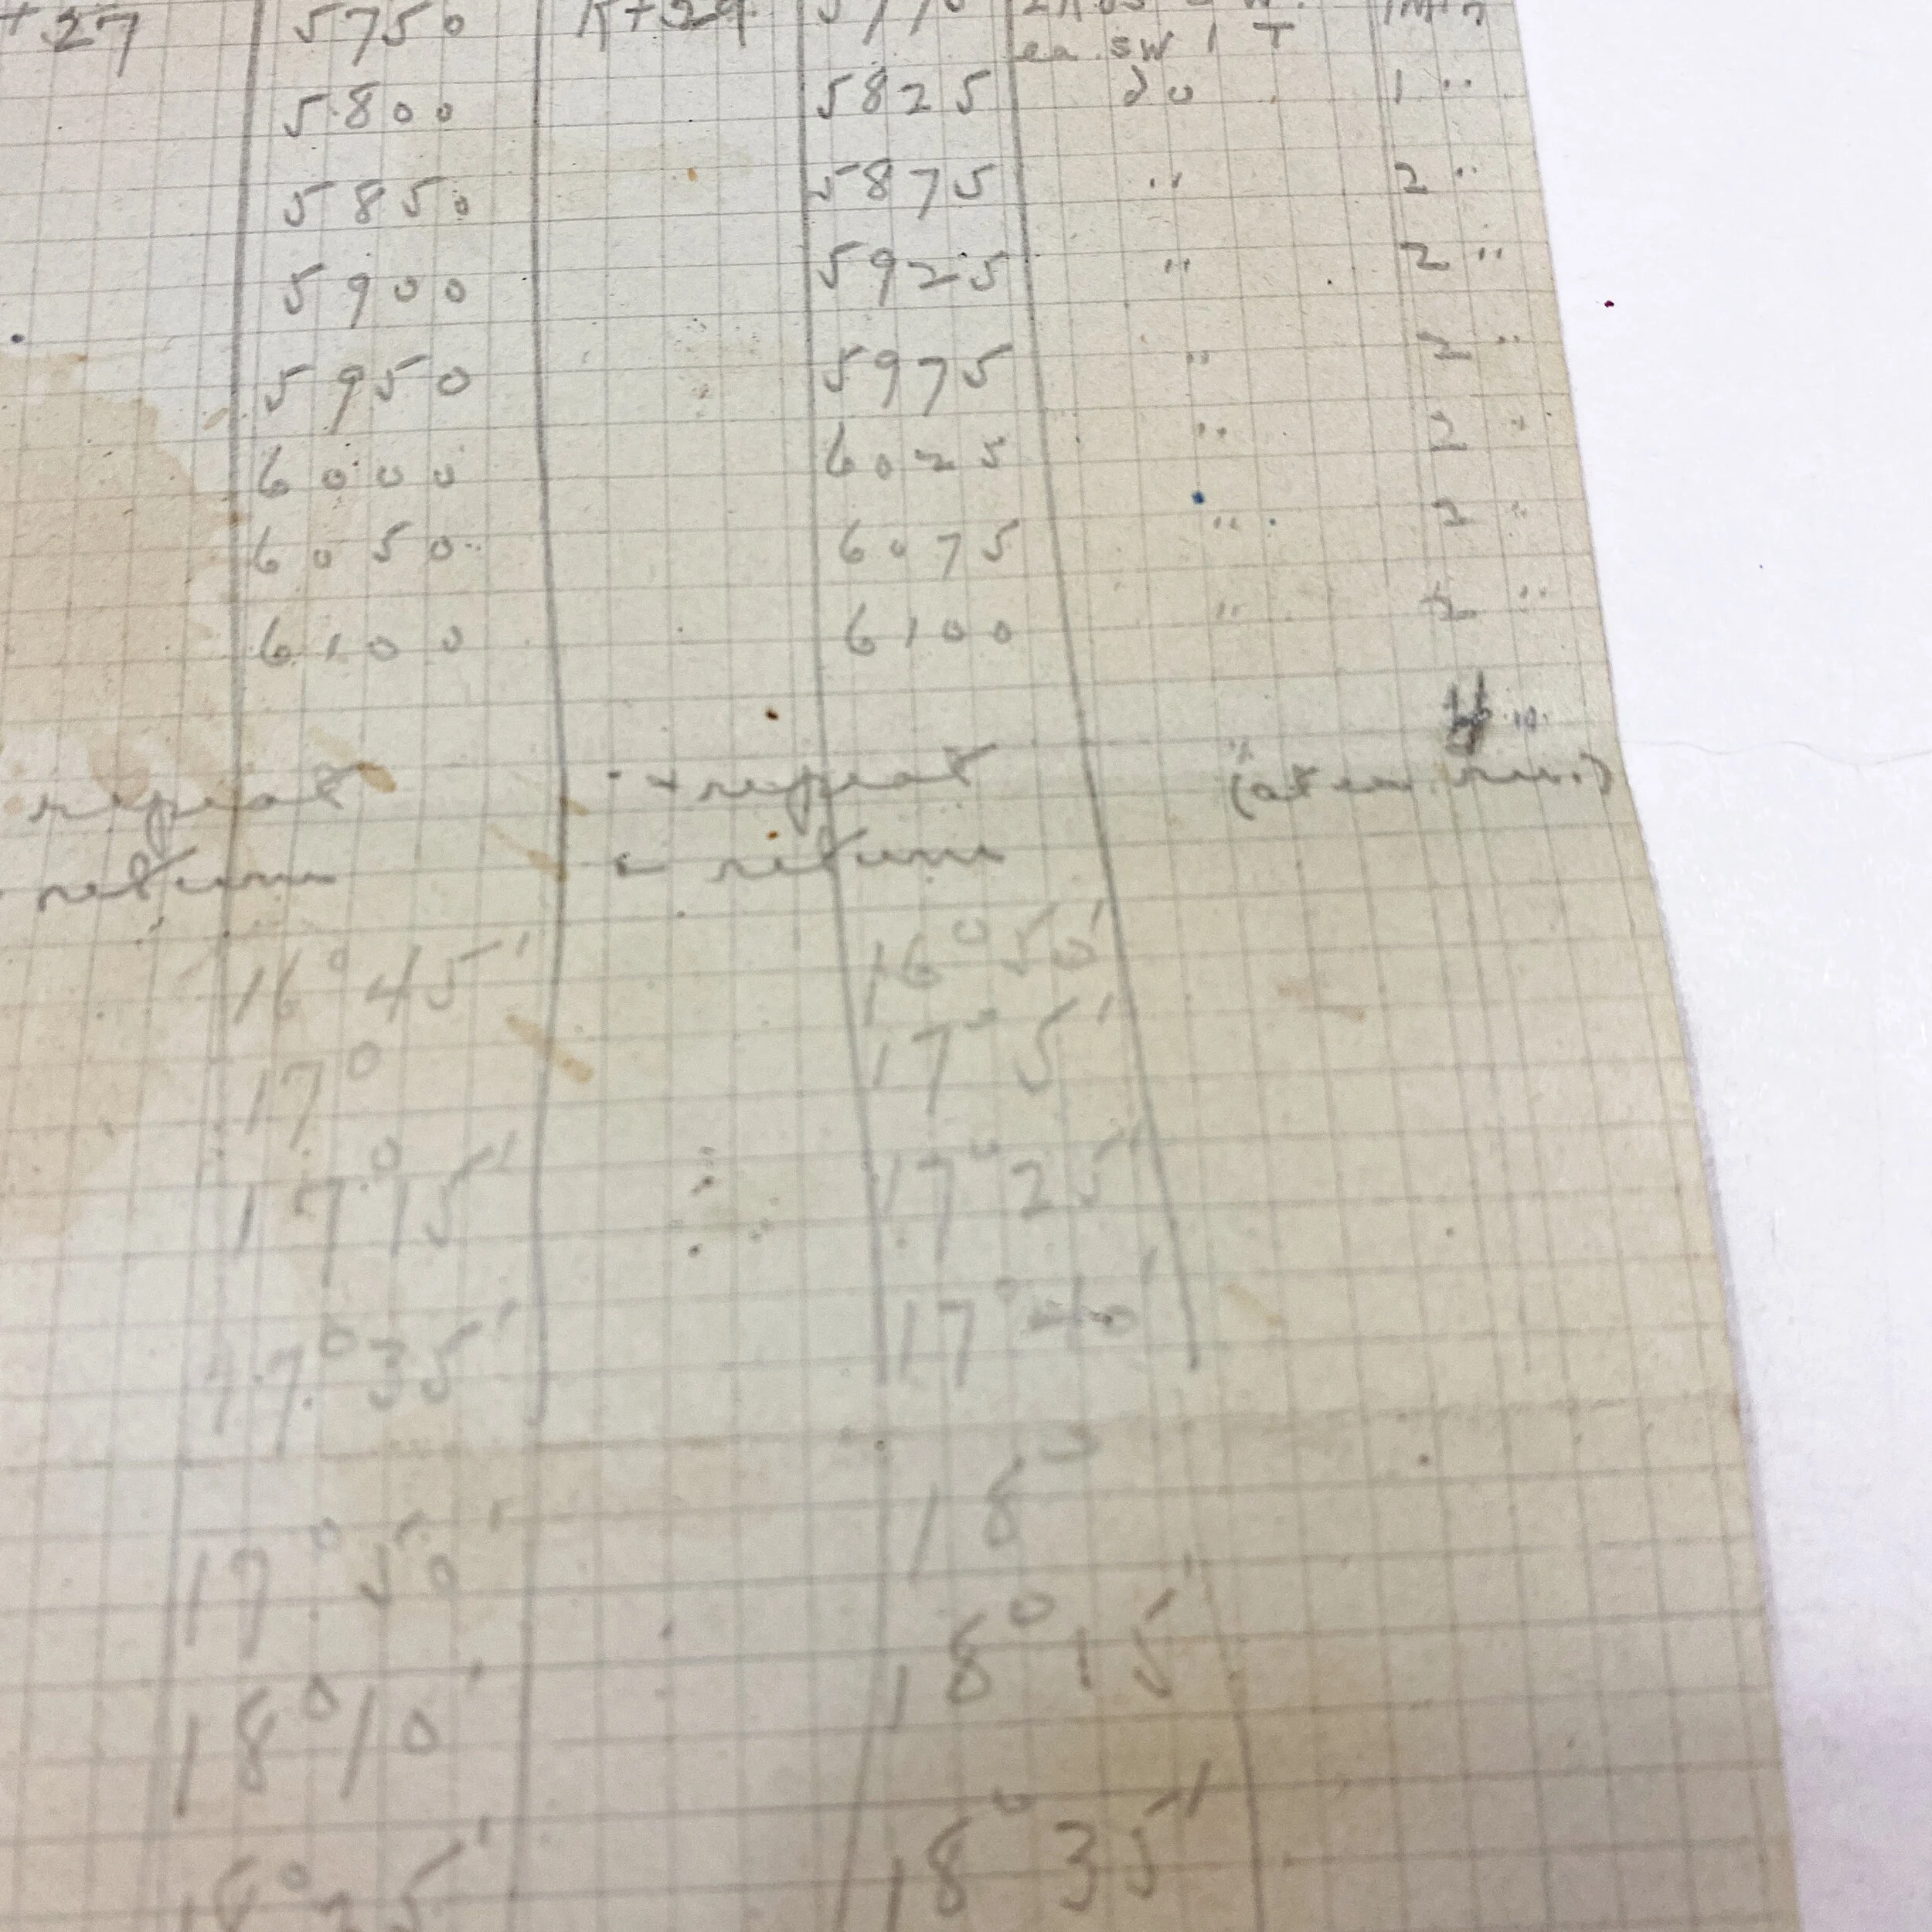 +27 5750 K+29
ea. SW 1 T
5800 5825 do 1 "
5850 5875 " 2 "
5900 5925 " 2 "
5950 5975 " 2 "
6000 6025 " 2 "
6050 6075 " 2 "
6100 6100 " 2 "
repeat + repeat
return return
16°45' 16°50'
17° 17°5'
17°15' 17°25'
17°35' 17°40'
17°50' 18°
18°10' 18°15'
18°35'